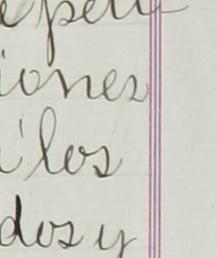 e pen
iones
a' los
dos y